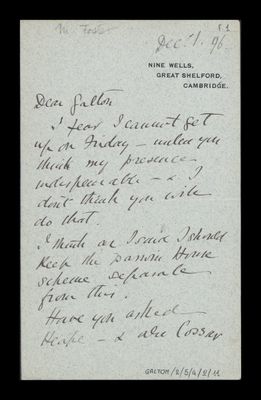 M. Foster
Dec. 1. 96
NINE WELLS,
GREAT SHELFORD,
CAMBRIDGE.
Dear Galton
I fear I cannot get
up on Friday – unless you
think my presence
indispensable – & I
dont think you will
do that.
I think as I said I should
keep the Darwin House
scheme separate
from this.
Have you asked
Heape – & also Cossar
GALTON/2/5/4/2/11